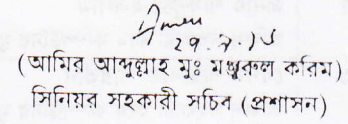 ২৭.৭.১৬
(আমির আব্দুল্লাহ মুঃ মঞ্জুরুল করিম)
সিনিয়র সহকারী সচিব (প্রশাসন)